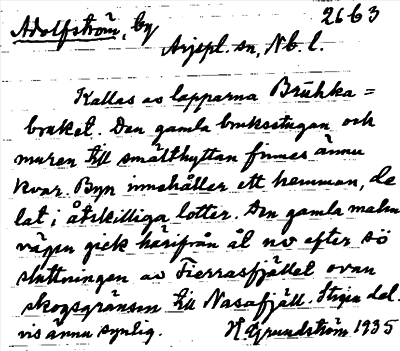 2663
Adolfström, by
Arjepl. sn, Nb. l.
Kallas av lapparna Brühka =
braket. Den gamla bruksstugan och
muren till smälthyttan finnes ännu
kvar. Byn innehåller ett hemman, de
lat i åtskilliga lotter. Den gamla malm
vägen gick härifrån åt nv efter sö
sluttningen av Tierrasfjället ovan
skogsgränsen till Nasafjäll. Stigen del
vis ännu synlig. H Grundström 1935